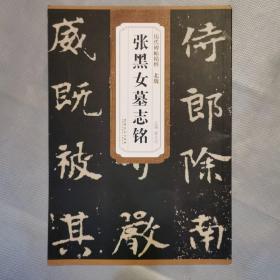 历代碑帖精粹 北魏
张黑女墓志铭
侍郎除南
嚴
威既被其